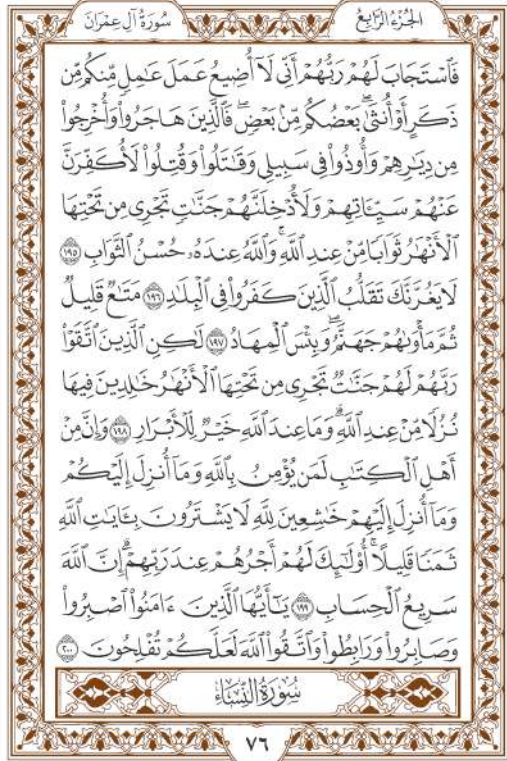 سُورَةُ آلِ عِمْرَانَ
الجُزْءُ الرَّابِعُ
فَٱسْتَجَابَ لَهُمْ رَبُّهُمْ أَنِّى لَآ أُضِيعُ عَمَلَ عَٰمِلٍ مِّنكُم مِّن
ذَكَرٍ أَوْ أُنثَىٰۖ بَعْضُكُم مِّنۢ بَعْضٍۖ فَٱلَّذِينَ هَاجَرُوا۟ وَأُخْرِجُوا۟
مِن دِيَٰرِهِمْ وَأُوذُوا۟ فِى سَبِيلِى وَقَٰتَلُوا۟ وَقُتِلُوا۟ لَأُكَفِّرَنَّ
عَنْهُمْ سَيِّـَٔاتِهِمْ وَلَأُدْخِلَنَّهُمْ جَنَّٰتٍ تَجْرِى مِن تَحْتِهَا
ٱلْأَنْهَٰرُ ثَوَابًا مِّنْ عِندِ ٱللَّهِۚ وَٱللَّهُ عِندَهُۥ حُسْنُ ٱلثَّوَابِ ١٩٥
لَا يَغُرَّنَّكَ تَقَلُّبُ ٱلَّذِينَ كَفَرُوا۟ فِى ٱلْبِلَٰدِ ١٩٦ مَتَٰعٌ قَلِيلٌ
ثُمَّ مَأْوَىٰهُمْ جَهَنَّمُۖ وَبِئْسَ ٱلْمِهَادُ ١٩٧ لَٰكِنِ ٱلَّذِينَ ٱتَّقَوْا۟
رَبَّهُمْ لَهُمْ جَنَّٰتٌ تَجْرِى مِن تَحْتِهَا ٱلْأَنْهَٰرُ خَٰلِدِينَ فِيهَا
نُزُلًا مِّنْ عِندِ ٱللَّهِۗ وَمَا عِندَ ٱللَّهِ خَيْرٌ لِّلْأَبْرَارِ ١٩٨ وَإِنَّ مِنْ
أَهْلِ ٱلْكِتَٰبِ لَمَن يُؤْمِنُ بِٱللَّهِ وَمَآ أُنزِلَ إِلَيْكُمْ
وَمَآ أُنزِلَ إِلَيْهِمْ خَٰشِعِينَ لِلَّهِ لَا يَشْتَرُونَ بِـَٔايَٰتِ ٱللَّهِ
ثَمَنًا قَلِيلًاۗ أُو۟لَٰٓئِكَ لَهُمْ أَجْرُهُمْ عِندَ رَبِّهِمْۗ إِنَّ ٱللَّهَ
سَرِيعُ ٱلْحِسَابِ ١٩٩ يَٰٓأَيُّهَا ٱلَّذِينَ ءَامَنُوا۟ ٱصْبِرُوا۟
وَصَابِرُوا۟ وَرَابِطُوا۟ وَٱتَّقُوا۟ ٱللَّهَ لَعَلَّكُمْ تُفْلِحُونَ ٢٠٠
سُورَةُ النِّسَاءِ
٧٦